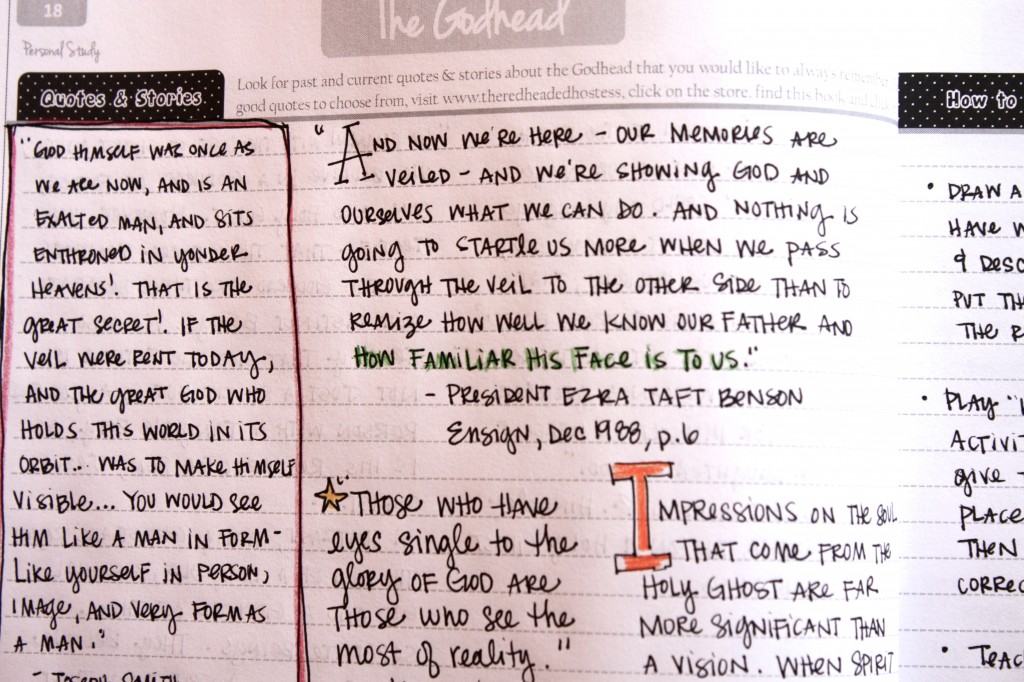 18
The Godhead
Personal Study
Quotes & Stories
Look for past and current quotes & stories about the Godhead that you would like to always remember
good quotes to choose from, visit www.theredheadedhostess, click on the store, find this book and click
How to
"GOD HIMSELF WAS ONCE AS
WE ARE NOW, AND IS AN
EXALTED MAN, AND SITS
ENTHRONED IN YONDER
HEAVENS! THAT IS THE
GREAT SECRET! IF THE
VEIL WERE RENT TODAY,
AND THE GREAT GOD WHO
HOLDS THIS WORLD IN ITS
ORBIT.. WAS TO MAKE HIMSELF
VISIBLE... YOU WOULD SEE
HIM LIKE A MAN IN FORM -
LIKE YOURSELF IN PERSON,
IMAGE, AND VERY FORM AS
A MAN."
- JOSEPH SMITH
"AND NOW WE'RE HERE - OUR MEMORIES ARE
VEILED - AND WE'RE SHOWING GOD AND
OURSELVES WHAT WE CAN DO. AND NOTHING IS
GOING TO STARTLE US MORE WHEN WE PASS
THROUGH THE VEIL TO THE OTHER SIDE THAN TO
REALIZE HOW WELL WE KNOW OUR FATHER AND
HOW FAMILIAR HIS FACE IS TO US."
- PRESIDENT EZRA TAFT BENSON
ENSIGN, DEC 1988, p.6
"THOSE WHO HAVE
eyes single to the
glory OF GOD ARE
THOSE WHO SEE THE
most of reality."
IMPRESSIONS ON THE SOUL
THAT COME FROM THE
HOLY GHOST ARE FAR
MORE SIGNIFICANT THAN
A VISION. WHEN SPIRIT
• DRAW A
HAVE
& DESC
PUT
THE R
• PLAY
ACTIVIT
GIVE
PLACE
THEN
CORREC
• TEAC